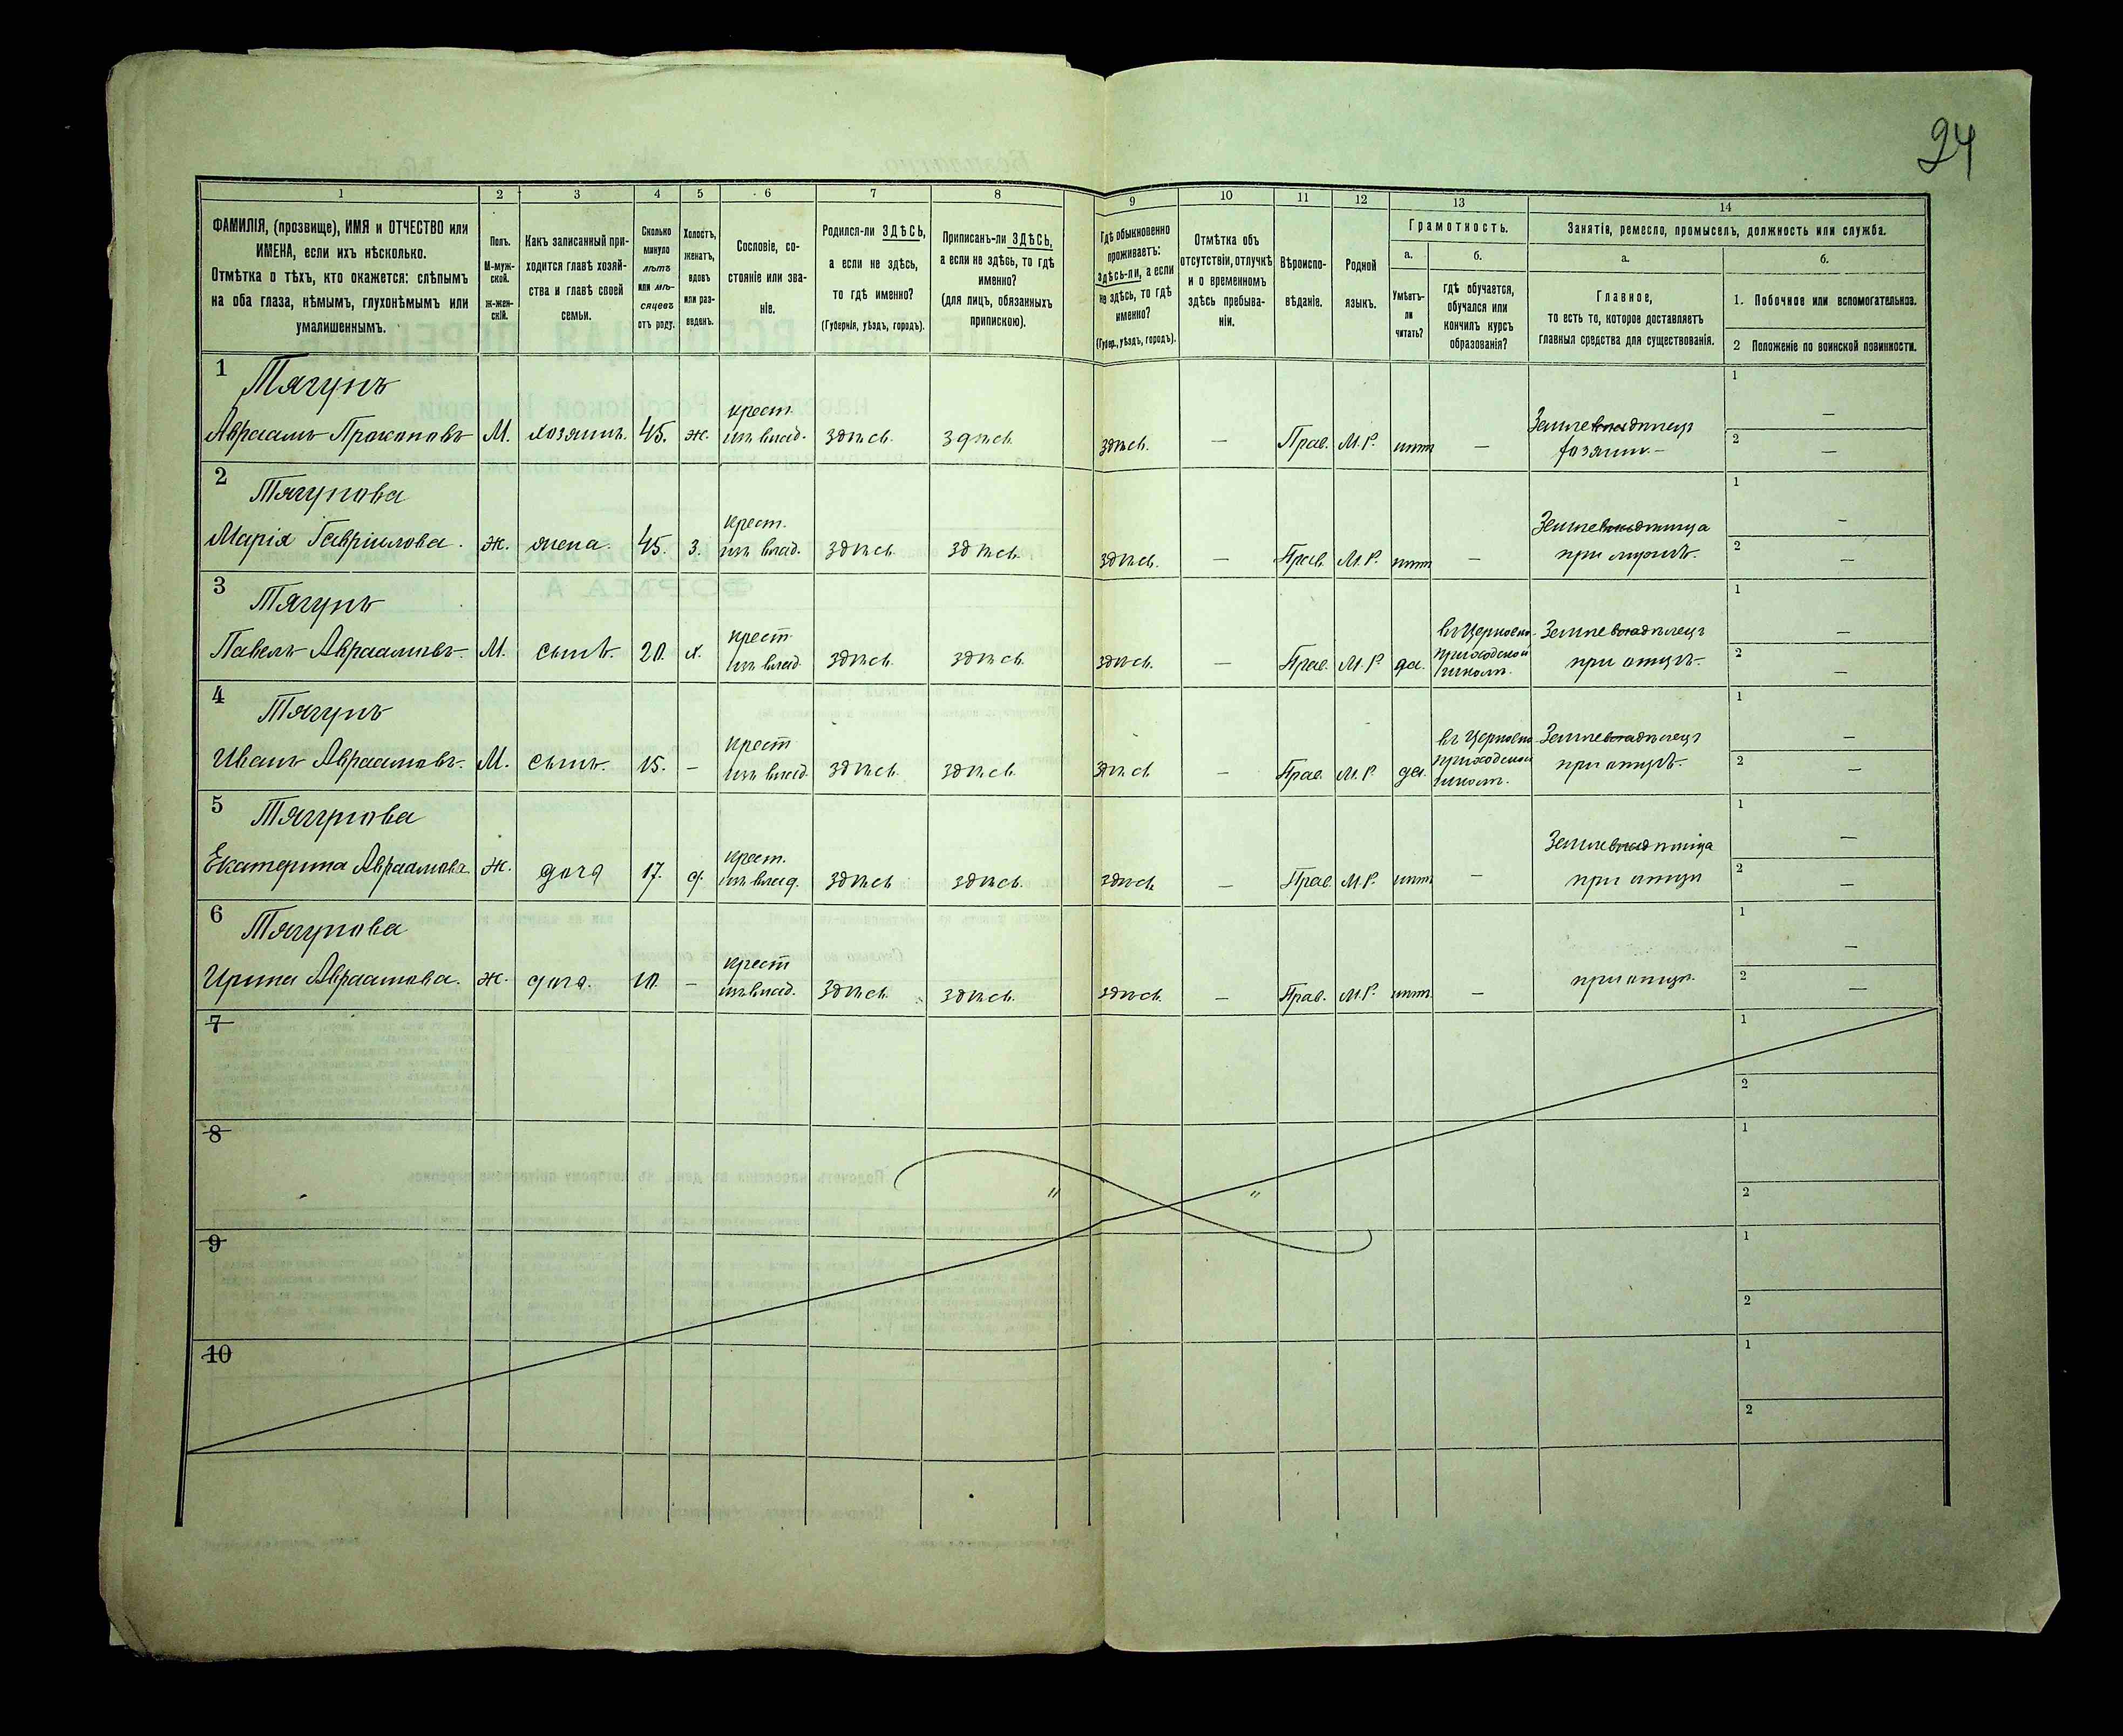 24
1 2 3 4 5 6 7 8 9 10 11 12 13 14
ФАМИЛІЯ, (прозвище), ИМЯ и ОТЧЕСТВО или
ИМЕНА, если ихъ нѣсколько.
Отмѣтка о тѣхъ, кто окажется: слѣпымъ
на оба глаза, нѣмымъ, глухонѣмымъ или
умалишеннымъ.
Полъ.
М-муж-
ской.
ж-жен-
скій.
Какъ записанный при-
ходится главѣ хозяй-
ства и главѣ своей
семьи.
Сколько
минуло
лѣтъ
или мѣ-
сяцевъ
отъ роду.
Холостъ,
женатъ,
вдовъ
или раз-
веденъ.
Сословіе, со-
стояніе или зва-
ніе.
Родился-ли ЗДѢСЬ,
а если не здѣсь,
то гдѣ именно?
(Губернія, уѣздъ, городъ).
Приписанъ-ли ЗДѢСЬ,
а если не здѣсь, то гдѣ
именно?
(для лицъ, обязанныхъ
припискою).
Гдѣ обыкновенно
проживаетъ:
здѣсь-ли, а если
не здѣсь, то гдѣ
именно?
(Губер., уѣздъ, городъ).
Отмѣтка объ
отсутствіи, отлучкѣ
и о временномъ
здѣсь пребыва-
ніи.
Вѣроиспо-
вѣданіе.
Родной
языкъ.
Грамотность.
а.
Умѣетъ-
ли
читать?
б.
гдѣ обучается,
обучался или
кончилъ курсъ
образованія?
Занятія, ремесло, промыселъ, должность или служба.
а.
Главное,
то есть то, которое доставляетъ
главныя средства для существованія.
б.
1. Побочное или вспомогательное.
2 Положеніе по воинской повинности.
1 Тягунъ 1 —
крест. Землевладѣлецъ
Авраамъ Прокоповъ М. хозяинъ. 45. ж. изъ влад. здѣсь. здѣсь. здѣсь. — Прав. М.Р. нѣтъ — хозяинъ.— 2 —
2 Тягунова 1 —
крест. Землевладѣлица
Марія Гавріилова. ж. жена. 45. з. изъ влад. здѣсь. здѣсь. здѣсь. — Прав. М.Р. нѣтъ — при мужѣ. 2 —
3 Тягунъ 1 —
крест. въ Церковно- Землевладѣлецъ
Павелъ Авраамовъ. М. сынъ. 20. х. изъ влад. здѣсь. здѣсь. здѣсь. — Прав. М.Р. да. приходской при отцѣ. 2 —
школѣ.
4 Тягунъ 1 —
крест въ Церковно- Землевладѣлецъ
Иванъ Авраамовъ. М. сынъ. 15. — изъ влад. здѣсь. здѣсь. здѣсь — Прав. М.Р. да. приходской при отцѣ. 2 —
школѣ.
5 Тягунова 1 —
крест. Землевладѣлица
Екатерина Авраамова ж. дочь 17. д. изъ влад. здѣсь здѣсь. здѣсь — Прав. М.Р. нѣтъ — при отцѣ 2 —
6 Тягунова 1 —
крест
Ирина Авраамова. ж. дочь. 10. — изъ влад. здѣсь. здѣсь. здѣсь. — Прав. М.Р. нѣтъ. — при отцѣ. 2 —
7 1
2
8 1
" " 2
9 1
2
10 1
2